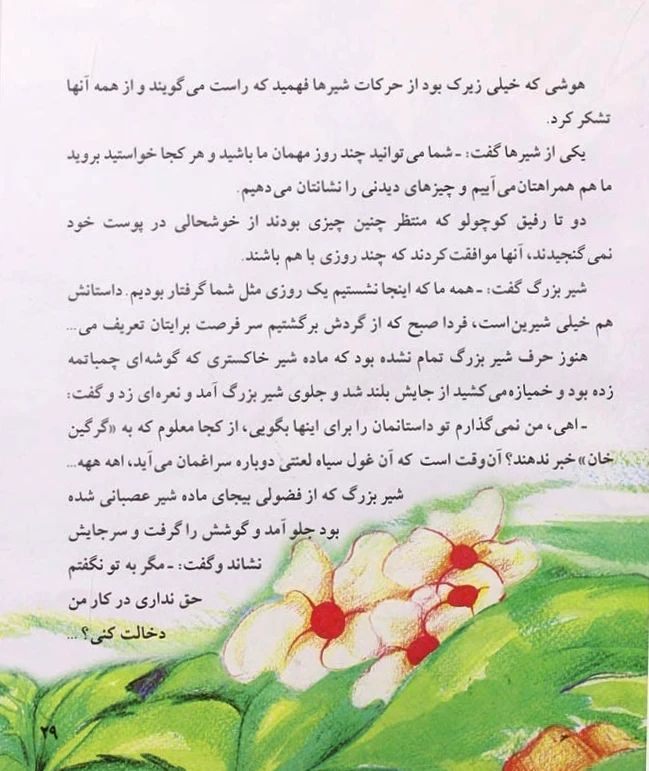 هوشی که خیلی زیرک بود از حرکات شیرها فهمید که راست می‌گویند و از همه آنها
تشکر کرد.
یکی از شیرها گفت: ـ شما می‌توانید چند روز مهمان ما باشید و هر کجا خواستید بروید
ما هم همراهتان می‌آییم و چیزهای دیدنی را نشانتان می‌دهیم.
دو تا رفیق کوچولو که منتظر چنین چیزی بودند از خوشحالی در پوست خود
نمی‌گنجیدند، آنها موافقت کردند که چند روزی با هم باشند.
شیر بزرگ گفت: ـ همه ما که اینجا نشستیم یک روزی مثل شما گرفتار بودیم. داستانش
هم خیلی شیرین است، فردا صبح که از گردش برگشتیم سر فرصت برایتان تعریف می ...
هنوز حرف شیر بزرگ تمام نشده بود که ماده شیر خاکستری که گوشه‌ای چمباتمه
زده بود و خمیازه می‌کشید از جایش بلند شد و جلوی شیر بزرگ آمد و نعره‌ای زد و گفت:
ـ اهی، من نمی‌گذارم تو داستانمان را برای اینها بگویی، از کجا معلوم که به «گرگین
خان» خبر ندهند؟ آن‌وقت است که آن غول سیاه لعنتی دوباره سراغمان می‌آید، اهه ههه...
شیر بزرگ که از فضولی بیجای ماده شیر عصبانی شده
بود جلو آمد و گوشش را گرفت و سر جایش
نشاند و گفت: ـ مگر به تو نگفتم
حق نداری در کار من
دخالت کنی؟ ...
۲۹